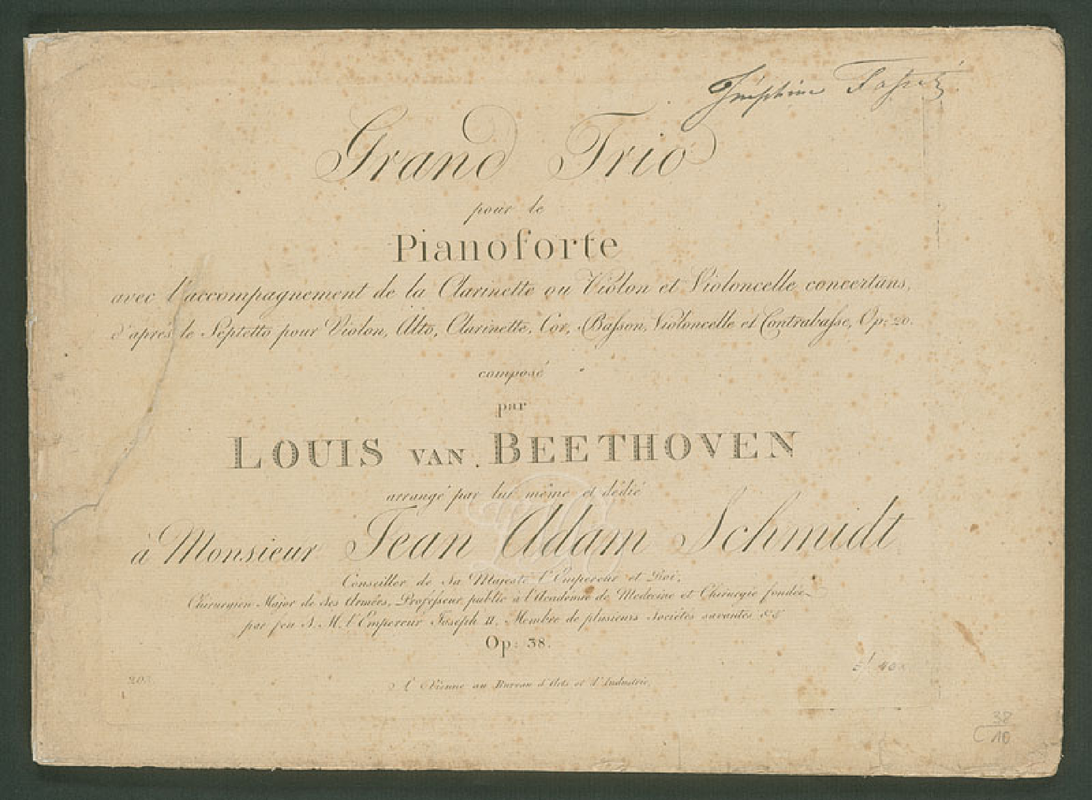 Joséphine
Grand Trio
pour le
Pianoforte
avec l'accompagnement de la Clarinette ou Violon et Violoncelle concertans,
d'après le Septetto pour Violon, Alto, Clarinette, Cor, Basson, Violoncelle et Contrabasse, Op: 20.
composé
par
LOUIS VAN BEETHOVEN
arrangé par lui même et dédié
à Monsieur Jean Adam Schmidt
Conseiller de Sa Majesté l'Empereur et Roi,
Chirurgien Major de Ses Armées, Professeur public à l'Académie de Medecine et Chirurgie fondée
par feu S. M. l'Empereur Joseph II. Membre de plusieurs Sociétés savantes &c
Op: 38.
A Vienne au Bureau d'Arts et d'Industrie.
C 38
10